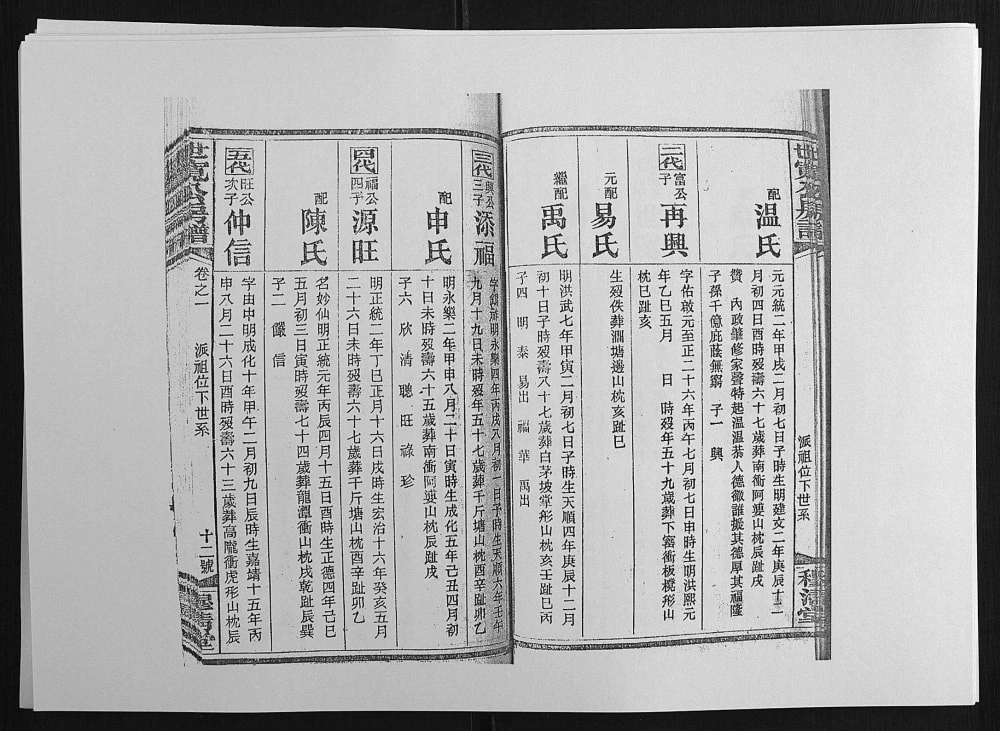 世寬公房譜
派祖位下世系
配
温氏
元元統二年甲戌二月初七日子時生明建文二年庚辰十一
月初四日酉時歿壽六十七歲葬南衝阿婁山枕辰趾戌
贊 內政肇修家聲特起溫溫恭人德徽誰振其德厚其福隆
子孫千億庇蔭無窮 子一 興
二代
富公
子
再興
字佑啟元至正二十六年丙午七月初七日申時生明洪熙元
年乙巳五月 日 時歿年五十九歲葬下窰衝板櫈形山
枕巳趾亥
元配
易氏
生歿佚葬澗塘邊山枕亥趾巳
繼配
禹氏
明洪武七年甲寅二月初七日子時生天順四年庚辰十二月
初十日子時歿壽八十七歲葬白茅坡掌形山枕亥壬趾巳丙
子四 明 泰 易出 福 華 禹出
三代
興公
三子
添福
字 明永樂四年丙戌八月初一日子時生天順六年壬午
九月十九日未時歿年五十七歲葬千斤塘山枕酉辛趾卯乙
配
申氏
明永樂二年甲申八月二十日寅時生成化五年己丑四月初
十日未時歿壽六十五歲葬南衝阿婁山枕辰趾戌
子六 欣 清 聰 旺 祿 珍
四代
福公
四子
源旺
明正統二年丁巳正月十六日戌時生宏治十六年癸亥五月
二十六日未時歿壽六十七歲葬千斤塘山枕酉辛趾卯乙
配
陳氏
名妙仙明正統元年丙辰四月十五日酉時生正德四年己巳
五月初三日寅時歿壽七十四歲葬龍潭衝山枕戌乾趾辰巽
子二 儼 信
五代
旺公
次子
仲信
字由申明成化十年甲午二月初九日辰時生嘉靖十五年丙
申八月二十六日酉時歿壽六十三歲葬高隴衝虎形山枕辰
世寬公房譜
卷之一
派祖位下世系
十二號